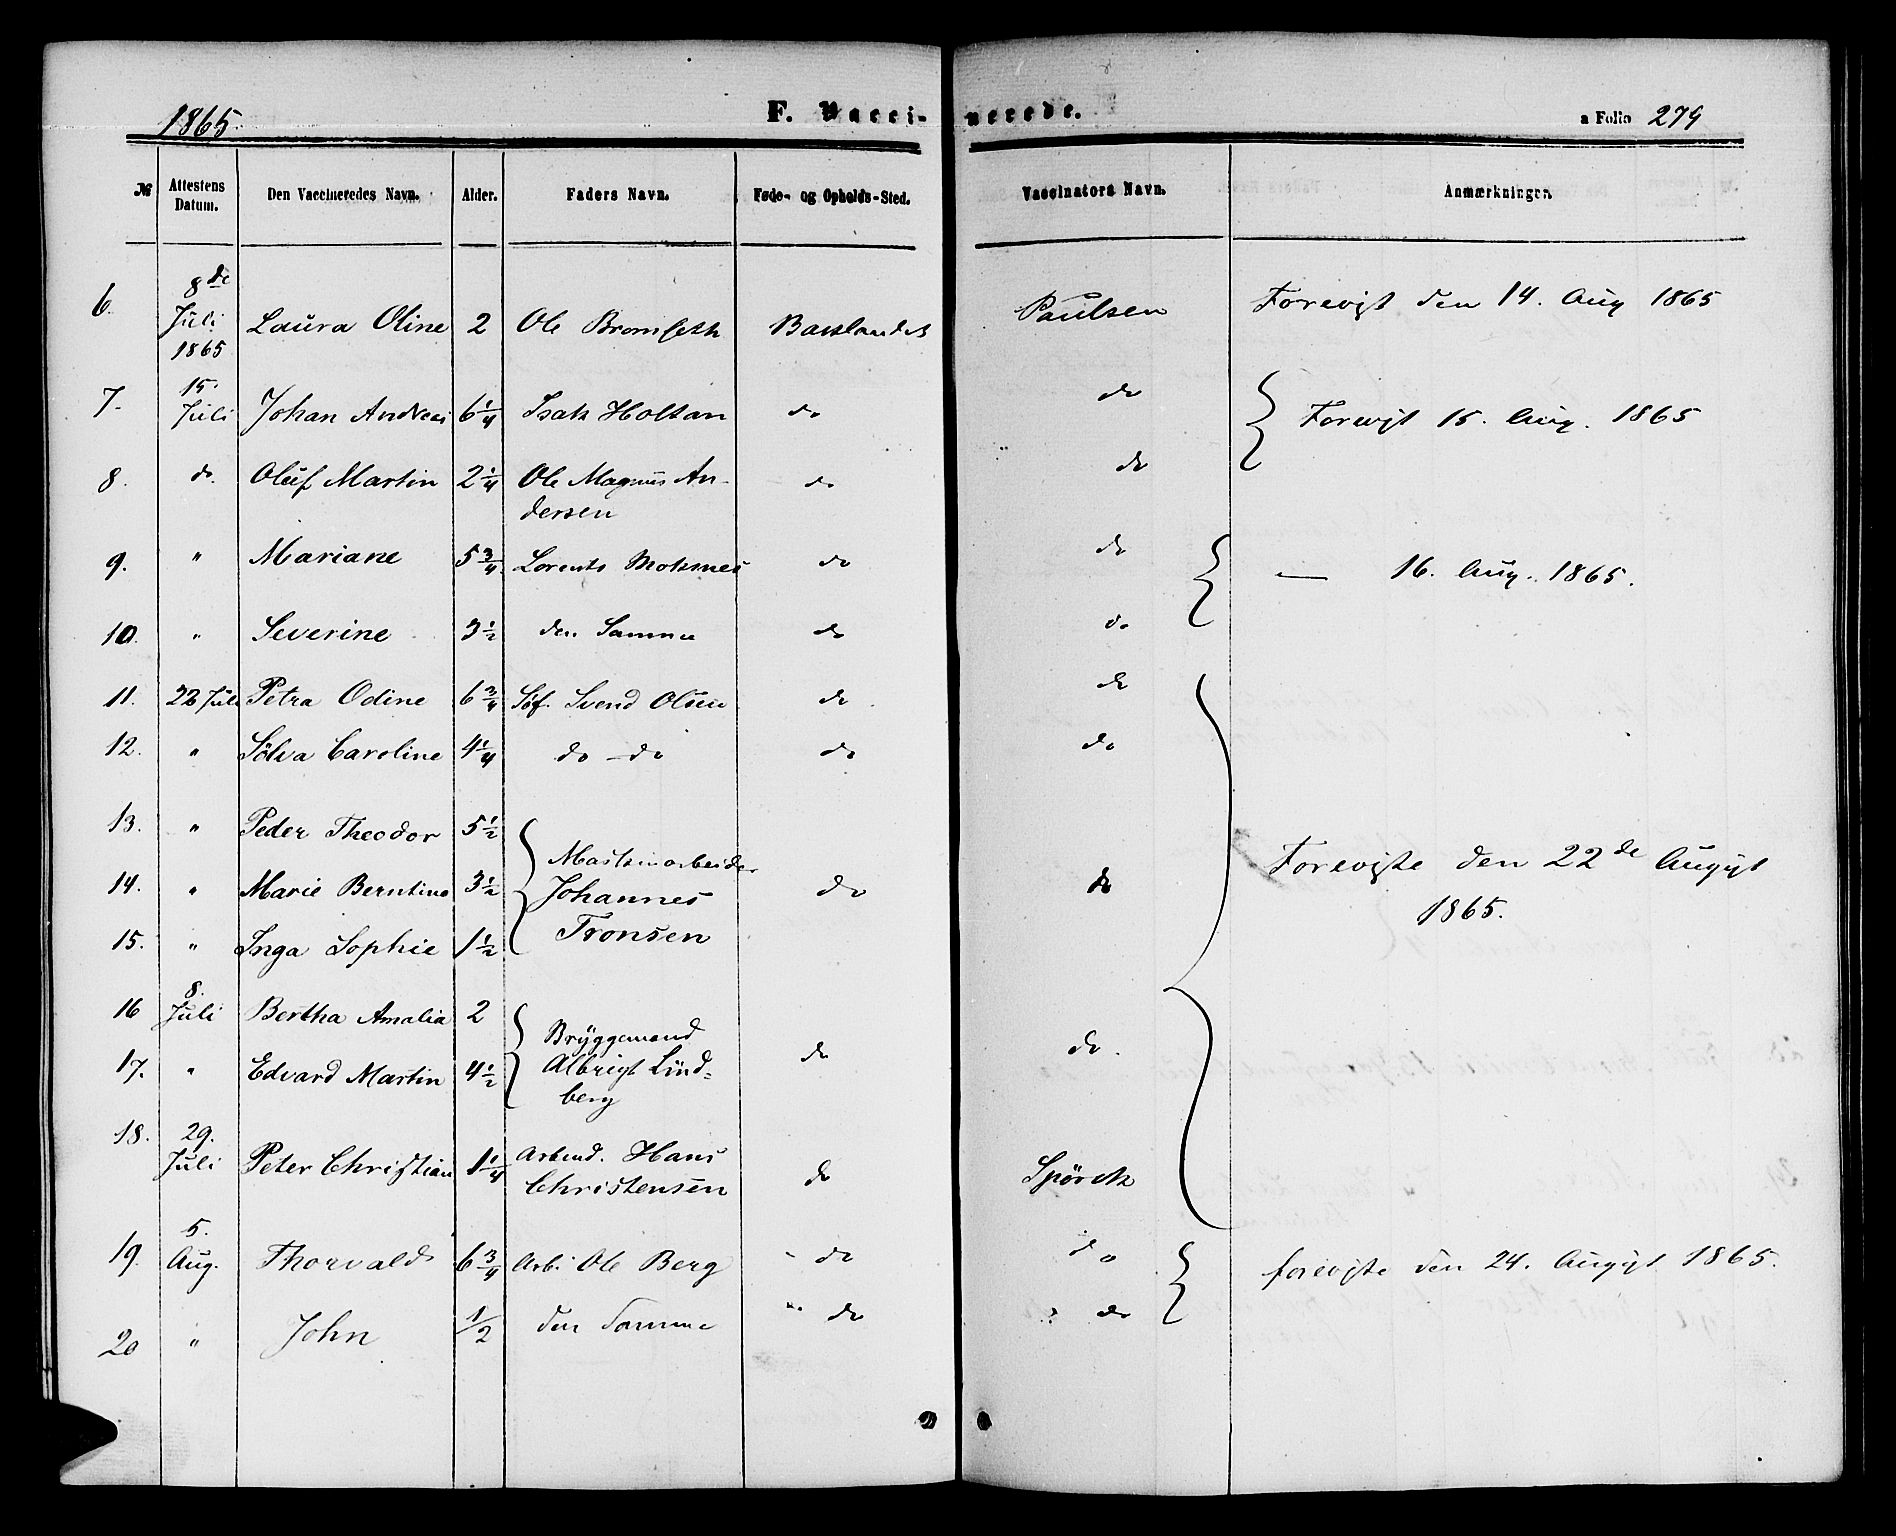 1865.
F. Vacci- nerede.
a Folio 279
№ Attestens Datum. Den Vaccineredes Navn. Alder. Faders Navn. Føde- og Opholds-Sted. Vaccinators Navn. Anmærkninger.
6. 8de Juli 1865 Laura Oline 2 Ole Bromseth Baklandet Paulsen Forevist den 14. Aug 1865
7. 15. Juli Johan Andreas 6 1/4 Isak Holtan do do Forevist 15. Aug. 1865
8. do. Oluf Martin 2 1/4 Ole Magnus An-
dersen do do
9. " Mariane 5 3/4 Lorents Moksnes do do — 16. Aug. 1865.
10. " Severine 3 1/2 den Samme do do
11. 22 Juli Petra Odine 6 3/4 Søf. Svend Olsen do do
12. " Sølva Caroline 4 1/4 do — do do do
13. " Peder Theodor 5 1/2
14. " Marie Berntine 3 1/2 Maskinarbeider
Johannes
Tronsen do do Foreviste den 22de August
1865.
15. " Inga Sophie 1 1/2
16 8. Juli Bertha Amalia 2 Bryggemand
17. " Edvard Martin 4 1/2 Albrigt Lind-
berg do do.
18. 29. Juli Peter Christian 1 1/4 Arbeid. Hans
Christensen do Spörck
19. 5. Aug. Thorvald 6 3/4 Arb. Ole Berg do do foreviste den 24. August 1865.
20 " John 1/2 den Samme " do do